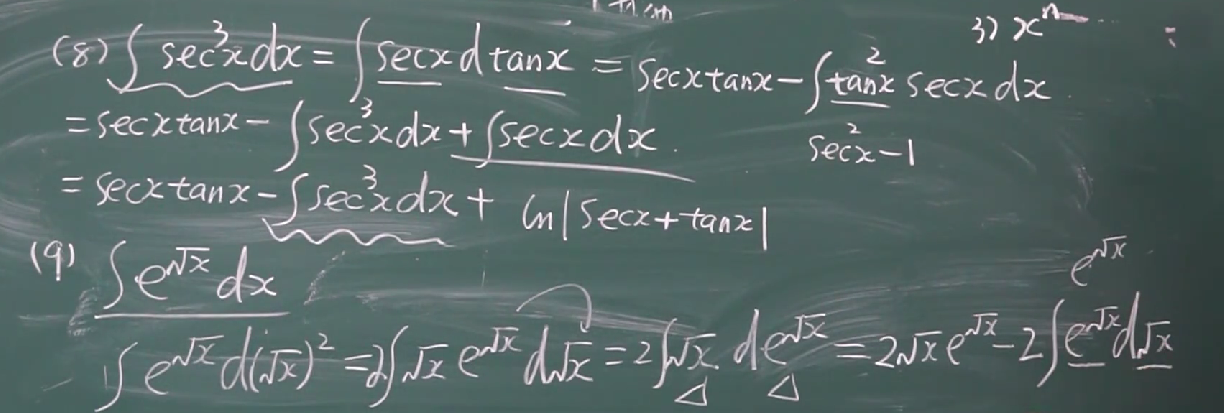 3) xⁿ
(8) ∫ sec³x dx = ∫ secx d tanx = secx tanx − ∫ tan²x secx dx.
sec²x − 1
= secx tanx − ∫ sec³x dx + ∫ secx dx.
= secx tanx − ∫ sec³x dx + ln|secx + tanx|
(9) ∫ e^√x dx
e^√x
∫ e^√x d(√x)² = 2∫ √x e^√x d√x = 2∫ √x de^√x = 2√x e^√x − 2∫ e^√x d√x